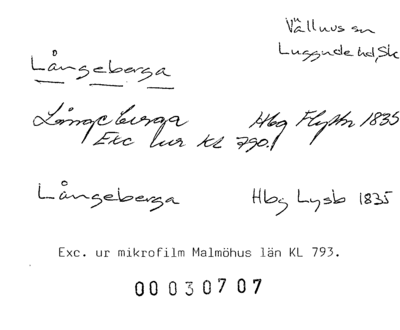 Välluvs sn
Luggude hd, Sk
Långeberga
Långeberga Hbg Flygfn 1835
Exc ur KL 790.
Långeberga Hbg Lysb 1835
Exc. ur mikrofilm Malmöhus län KL 793.
00 030707